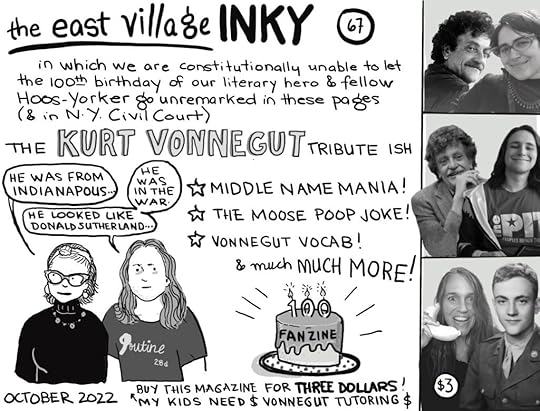 the east village INKY 67
in which we are constitutionally unable to let
the 100th birthday of our literary hero & fellow
Hoos-Yorker go unremarked in these pages
(& in N.Y. Civil Court)
THE KURT VONNEGUT TRIBUTE ISH
HE WAS FROM
INDIANAPOLIS...
HE
WAS
IN THE
WAR.
HE LOOKED LIKE
DONALD SUTHERLAND...
☆ MIDDLE NAME MANIA!
☆ THE MOOSE POOP JOKE!
☆ VONNEGUT VOCAB!
& much MUCH MORE!
100
FANZINE
OCTOBER 2022
BUY THIS MAGAZINE FOR THREE DOLLARS!
MY KIDS NEED $ VONNEGUT TUTORING $
PIT
$3